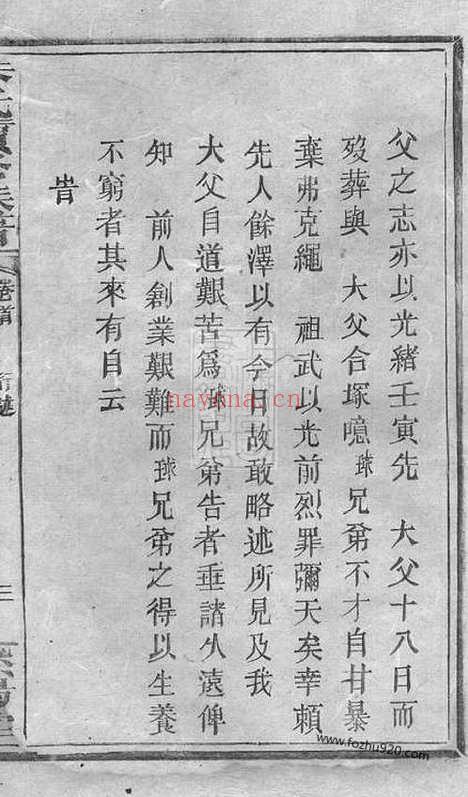 父之志亦以光緒壬寅先 大父十八日而
歿葬與 大父合塚噫球兄弟不才自甘暴
棄弗克繩 祖武以光前烈罪彌天矣幸賴
先人餘澤以有今日故敢略述所見及我
大父自道艱苦爲球兄弟告者垂諸久遠俾
知 前人創業艱難而球兄弟之得以生養
不窮者其來有自云
卷首
三
nayona.cn
www.fozhu920.com